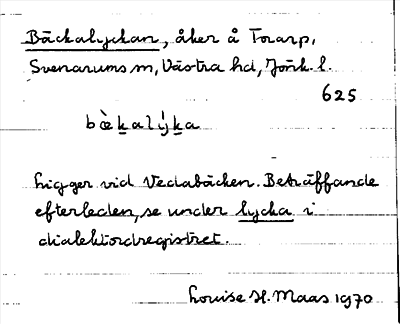 Bäckalyckan, åker å Torarp,
Svenarums sn, Västra hd, Jönk. l.
625
bæ̀kalýka
Ligger vid Vedabäcken. Beträffande
efterleden, se under lycka i
dialektordregistret.
Louise H. Maas 1970